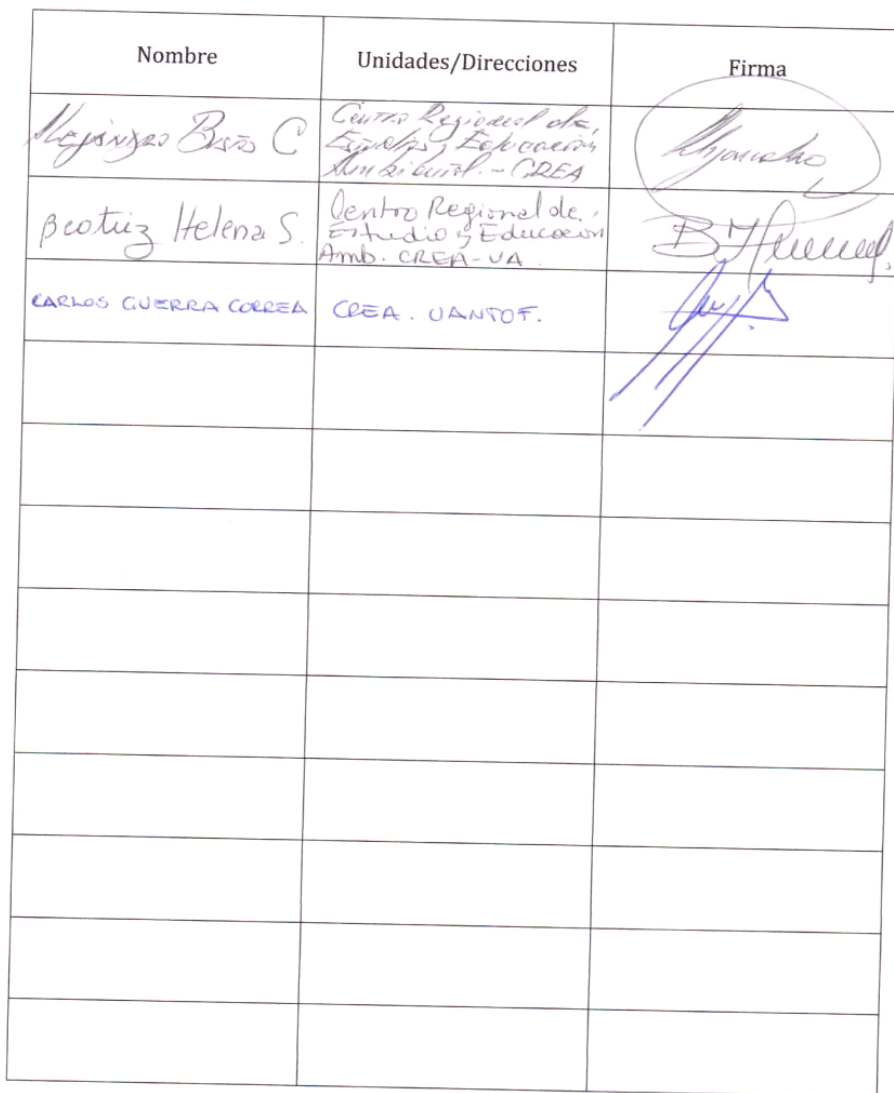 Nombre
Unidades/Direcciones
Firma
C
Centro Regional de
Estudios y Educación
Ambiental. - CREA
Beatriz Helena S.
Centro Regional de
Estudio y Educación
Amb. CREA-UA
CARLOS GUERRA CORREA
CREA. UANTOF.